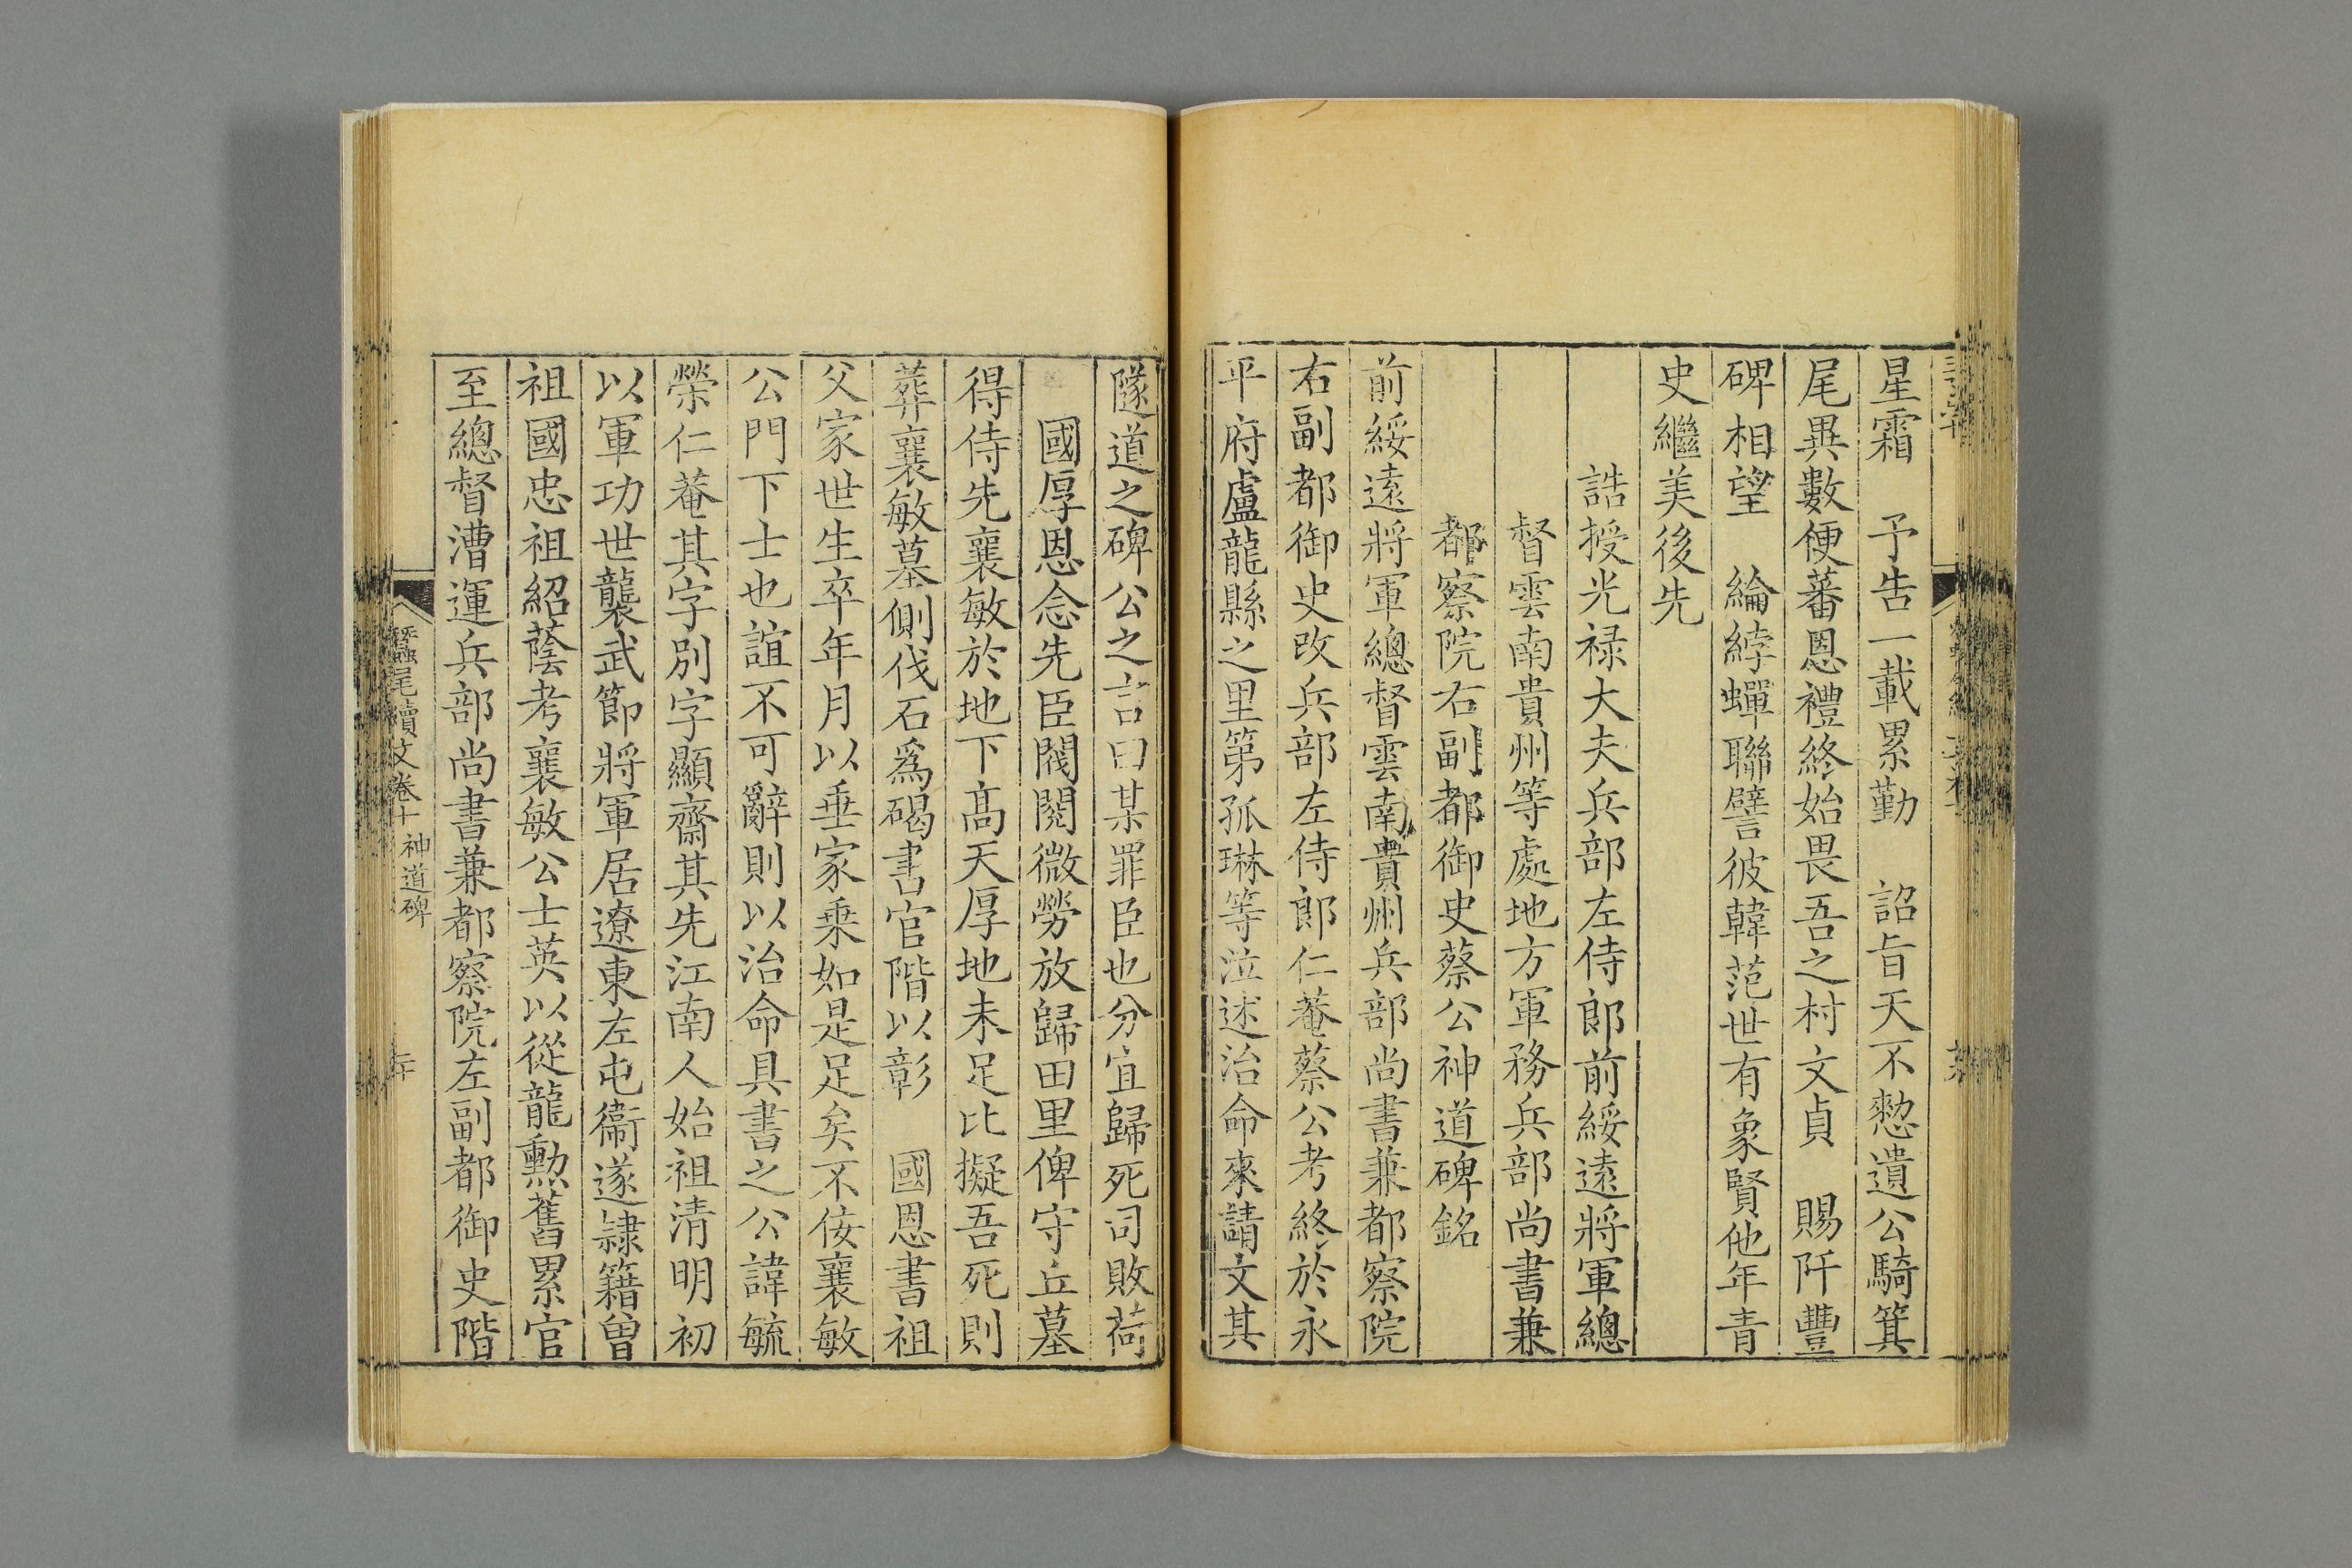 星霜　予告一載累勤　詔旨天不憗遺公騎箕
尾異數便蕃恩禮終始畏吾之村文貞　賜阡豐
碑相望　綸綍蟬聯譬彼韓范世有象賢他年青
史繼美後先
誥授光祿大夫兵部左侍郎前綏遠將軍總
督雲南貴州等處地方軍務兵部尚書兼
都察院右副都御史蔡公神道碑銘
前綏遠將軍總督雲南貴州兵部尚書兼都察院
右副都御史改兵部左侍郎仁菴蔡公考終於永
平府盧龍縣之里第孤琳等泣述治命來請文其
隧道之碑公之言曰某罪臣也分宜歸死司敗荷
國厚恩念先臣閥閱微勞放歸田里俾守丘墓
得侍先襄敏於地下高天厚地未足比擬吾死則
葬襄敏墓側伐石爲碣書官階以彰　國恩書祖
父家世生卒年月以垂家乗如是足矣不佞襄敏
公門下士也誼不可辭則以治命具書之公諱毓
榮仁菴其字別字顯齋其先江南人始祖清明初
以軍功世襲武節將軍居遼東左屯衞遂隷籍曾
祖國忠祖紹蔭考襄敏公士英以從龍勲舊累官
至總督漕運兵部尚書兼都察院左副都御史階
蠶尾續文卷十　神道碑